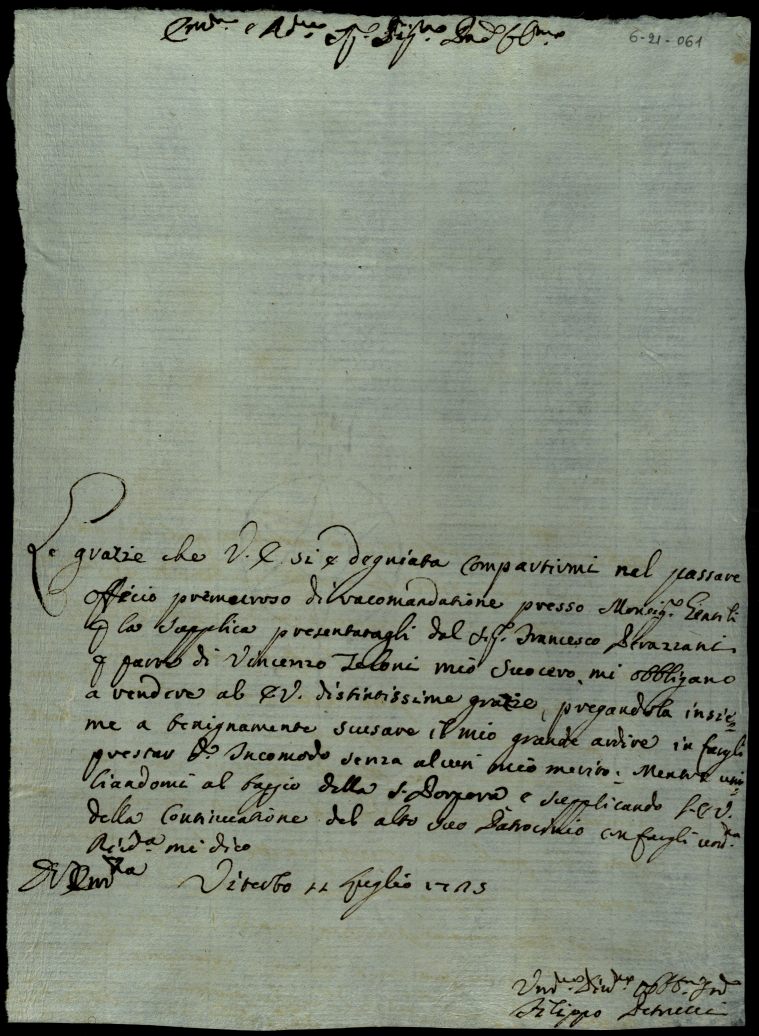 Em.mo e R.do Sig.r Sig.re Pad. Col.mo
6-21-061
Le grazie che V. E. si è degniata compartirmi nel passare
offecio premuroso di racomandatione presso Monsig.r Gentili
p la supplica presentatagli dal Sig.r Francesco Strazzani
p parte di Vincenzo Zeloni mio suocero, mi obbligano
a rendere al E V. distintissime grazie, pregandola insie=
me a benignamente scusare il mio grande ardire in fargli
prestar d.o Incomodo senza alcun mio merito: Mentre umi=
liandomi al baggio della S. Porpora e supplicando l'E V.
della Continuatione del alto suo Patrocinio con fargli um.ma
Reive.a mi dico
D V Em.za Viterbo 11 luglio 1715
Um.mo Div.mo Obb.mo
Filippo Petrucci